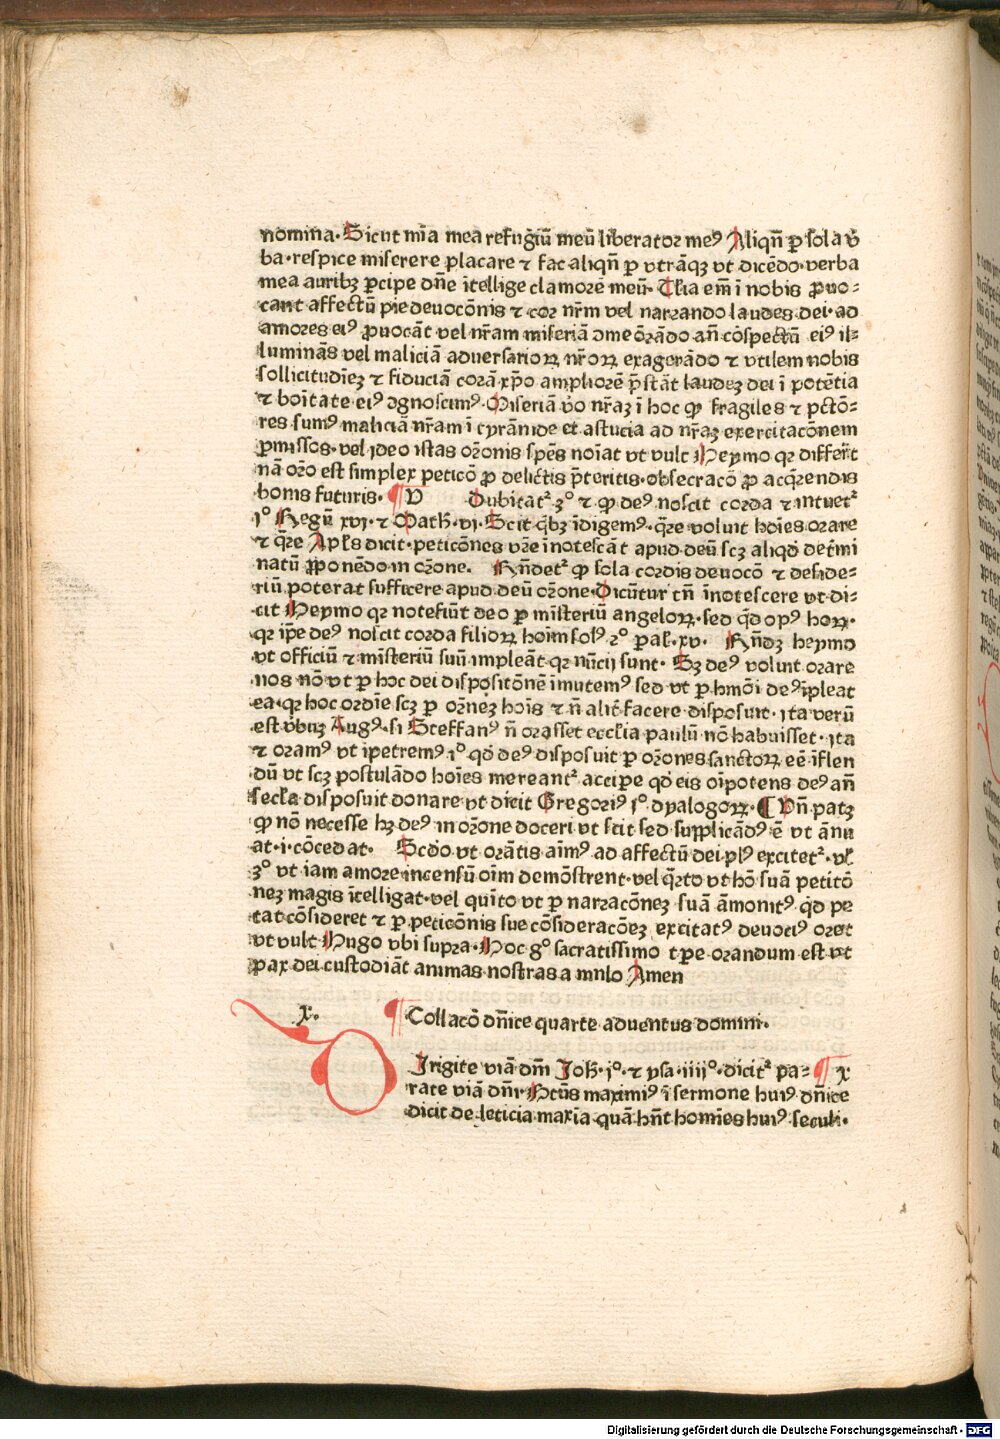 nomina. Sicut mīa mea refugiū meū liberator meꝰ Aliqñ ꝑ sola v̄
ba. respice miserere placare ⁊ fac aliqñ ꝑ vtrāqꝫ vt dicēdo. verba
mea auribꝫ ꝑcipe dn̄e ītellige clamorē meū. Tēia em̄ ī nobis ꝓuo⸗
cant affectū pie deuocōnis ⁊ cor nr̄m vel narrando laudes dei. ad
amores eiꝰ ꝓuocāt vel nr̄am miseriā ↄmeōrādo an̄ cōspectū eiꝰ il⸗
luminās vel maliciā aduersarioꝝ nr̄oꝝ exagerādo ⁊ vtilem nobis
sollicitudīeꝫ ⁊ fiduciā corā xp̄o ampliorē p̄stāt laudeꝫ dei ī potētia
⁊ boītate eiꝰ ↄgnoscimꝰ. Miseriā v̄o nr̄aꝫ ī hoc ꝙ fragiles ⁊ pctō⸗
res sumꝰ maliciā nr̄am ī tyrānide et astucia ad nr̄aꝫ exercitacōnem
ꝑmissos. vel ideo istas orōnis spēs noīat vt vult Heymo qꝛ differt̄
nā orō est simplex peticō ꝓ delictis p̄teritis. obsecracō ꝓ acq̄rendis
bonis futuris. ¶ V Dubitatᷣ 3° ⁊ ꝙ deꝰ noscit corda ⁊ intuetᷣ
1° Regū xvi. ⁊ Math̄. vi. Scit q̄bꝫ īdigemꝰ. q̄re voluit hoīes orare
⁊ q̄re Apl̄s dicit. peticōnes vr̄e īnotescāt apud deū scꝫ aliqd̄ det̄mi
natū ꝓponēdo in orōne. Rn̄detᷣ ꝙ sola cordis deuocō ⁊ deside⸗
riū poterat sufficere apud deū orōne. Dicūtur tn̄ īnotescere vt di⸗
cit Heymo qꝛ notefiūt deo ꝑ mīsteriū angeloꝝ. sed q̄d opꝰ hoꝝ.
qꝛ ip̄e deꝰ noscit corda filioꝝ hoīm solꝰ 2° pal̄. xv. Rn̄dꝫ heymo
vt officiū ⁊ mīsteriū suū impleāt qꝛ nūcij sunt. Sꝫ deꝰ voluit orare
nos nō vt ꝑ hoc dei dispositōnē īmutemꝰ sed vt ꝑ hmōi deꝰ īpleat
ea. qꝛ hoc ordīe scꝫ ꝑ orōneꝫ hoīs ⁊ n̄ alit̄ facere disposuit. ita verū
est v̄buꝫ Augꝰ. si Steffanꝰ n̄ orasset eccl̄ia paulū nō habuisset. ita
⁊ oramꝰ vt īpetremꝰ 1° qd̄ deꝰ disposuit ꝑ orōnes sanctoꝝ eē īflen
dū vt scꝫ postulādo hoīes mereantᷣ accipe qd̄ eis oīpotens deꝰ an̄
secl̄a disposuit donare vt dicit Gregoriꝰ 1° dyalogoꝝ. ¶ Vn̄ patꝫ
ꝙ nō necesse hꝫ deꝰ in orōne doceri vt scit sed supplicādꝰ ē vt ānu
at. i. cōcedat. Scdō vt orātis aīmꝰ ad affectū dei plꝰ excitetᷣ. vl̄
3° vt iam amore incensū oīm demōstrent. vel q̄rto vt hō suā petitō
neꝫ magis ītelligat. vel quīto vt ꝑ narracōneꝫ suā āmonitꝰ q̄d pe
tat cōsideret ⁊ ꝑ peticōnis sue cōsideracōeꝫ excitatꝰ deuociꝰ oret
vt vult Hugo vbi supra. Hoc g° sacratissimo tꝑe orandum est vt
pax dei custodiāt animas nostras a mnlo Amen
.x. ¶ Collacō dn̄ice quarte aduentus domini.
Dirigite viā dn̄i Joh̄. 1°. ⁊ ysa. iiii°. dicitᷣ pa⸗ ¶ x
rate viā dn̄i. Htūs maximiꝰ ī sermone huiꝰ dn̄ice
dicit de leticia maxīa quā hn̄t homīes huiꝰ seculi.
Digitalisierung gefördert durch die Deutsche Forschungsgemeinschaft - DFG